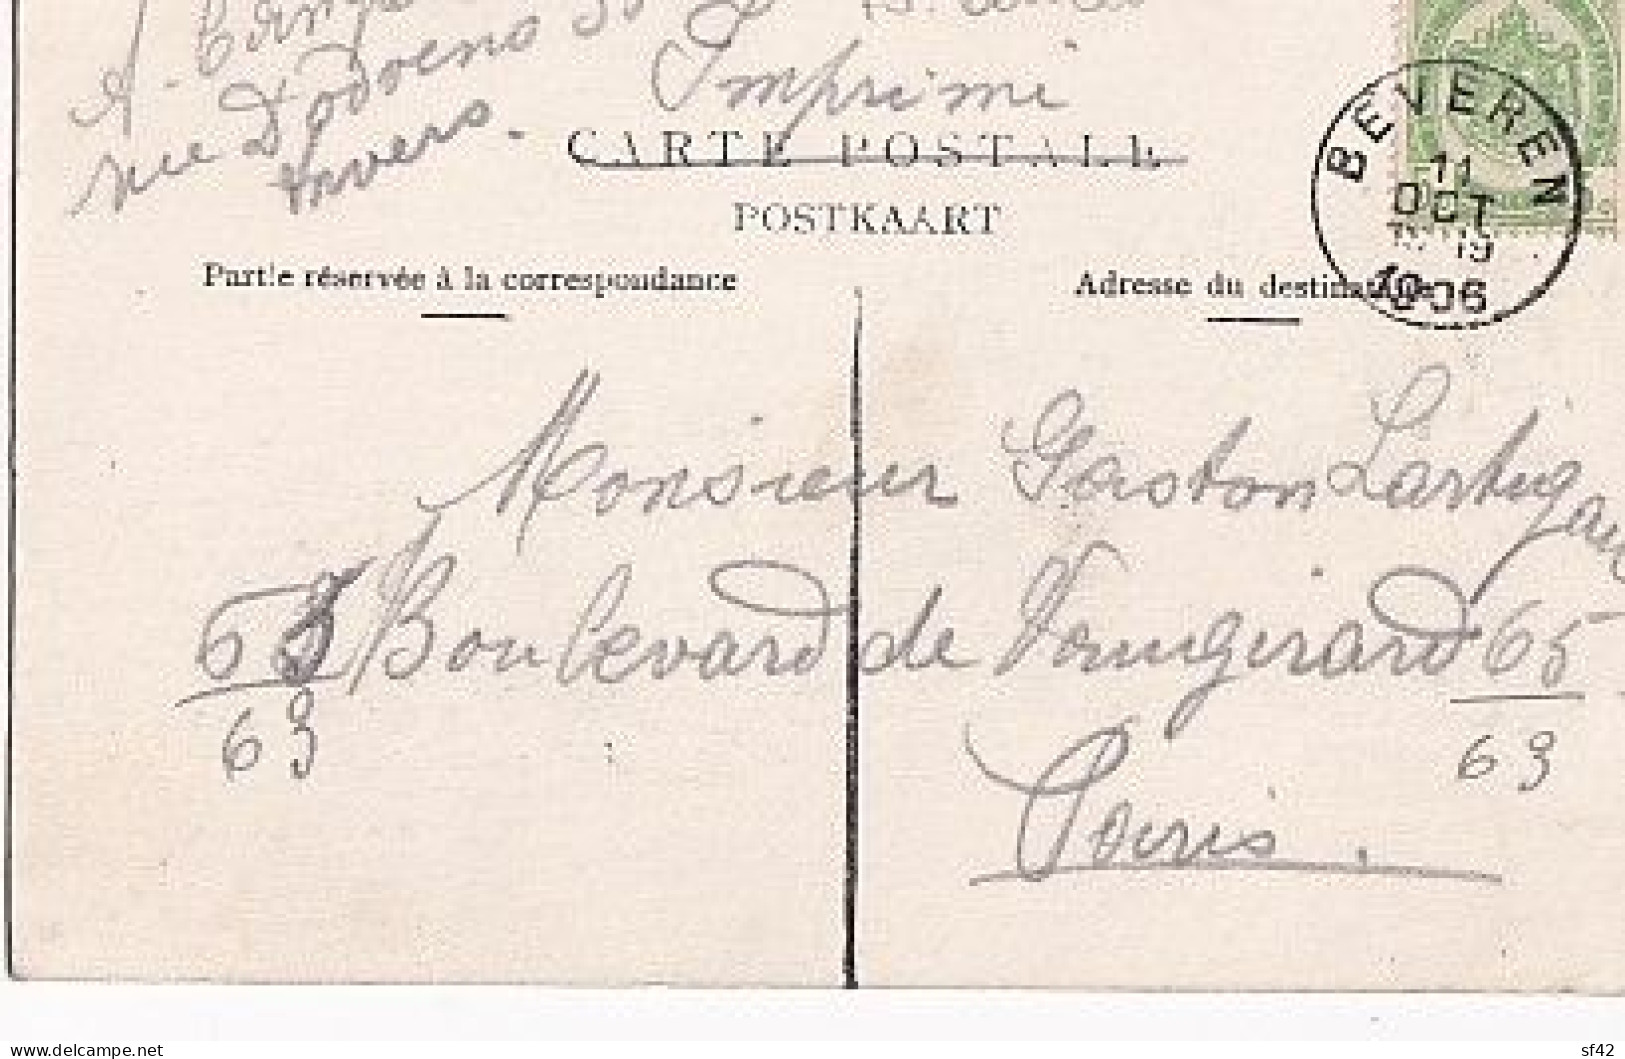 rue Dodoens 30
Anvers.
Imprimé
CARTE POSTALE
POSTKAART
BEVEREN
11
OCT
19
1906
Partie réservée à la correspondance
Adresse du destinataire
Monsieur Gaston Lartigau
63 Boulevard de Vaugirard 65
63
63
Paris.
delcampe.net
sf42